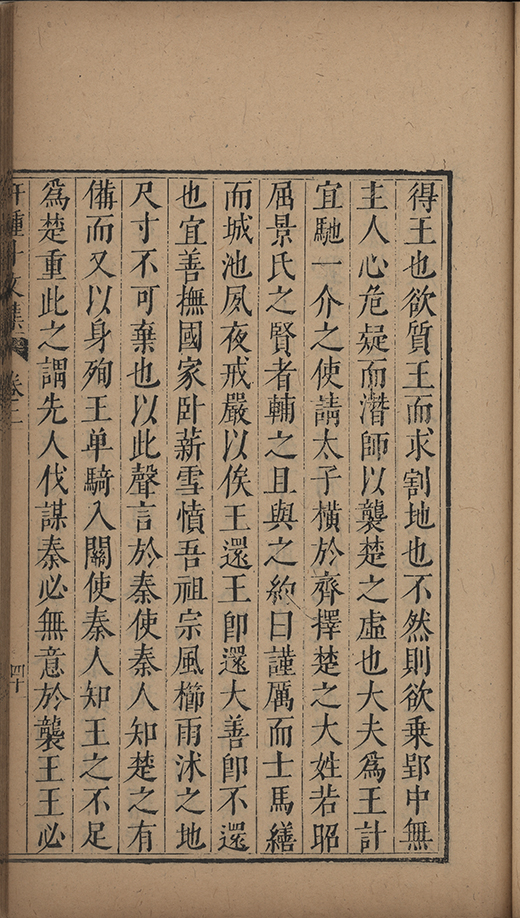 得王也欲質王而求割地也不然則欲乗郢中無
主人心危疑而潛師以襲楚之虛也大夫爲王計
宜馳一介之使請太子横於齊擇楚之大姓若昭
屈景氏之賢者輔之且與之約曰謹厲而士馬繕
而城池夙夜戒嚴以俟王還王卽還大善卽不還
也宜善撫國家卧薪雪憤吾祖宗風櫛雨沐之地
尺寸不可棄也以此聲言於秦使秦人知楚之有
備而又以身殉王单騎入關使秦人知王之不足
爲楚重此之謂先人伐謀秦必無意於襲王王必
文集
卷二
四十